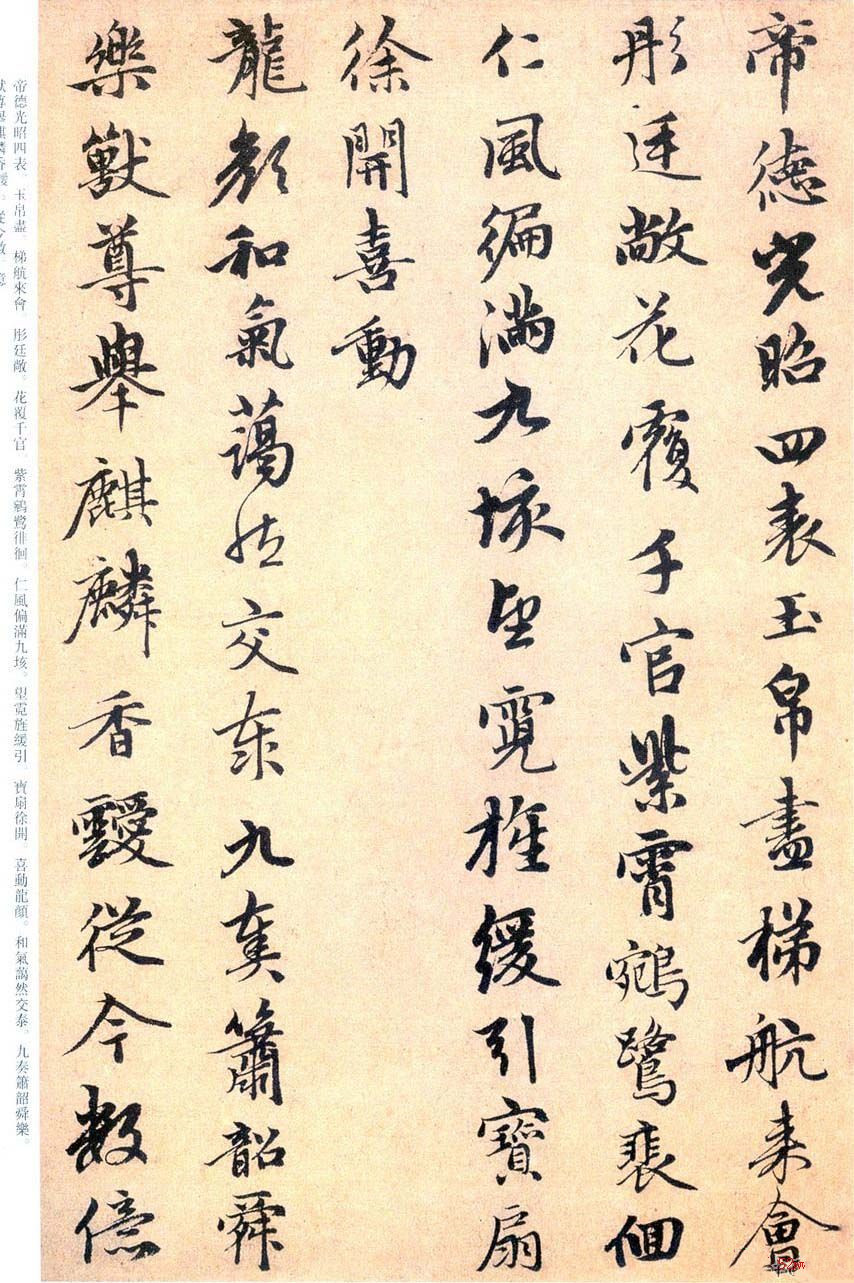 帝德光昭四表玉帛盡梯航来會
彤廷敞花覆千官紫霄鵷鷺裴佪
仁風徧滿九垓望霓旌緩引寶扇
徐開喜動
龍顏和氣藹然交泰九奏簫韶舜
樂獸尊舉麒麟香靉從今數億
帝德光昭四表 玉帛盡 梯航來會 彤廷敞。花覆千官 紫霄鵷鷺徘徊。仁風偏滿九垓。望霓旌緩引 寶扇徐開 喜動龍顏。和氣藹然交泰。九奏簫韶舜樂。